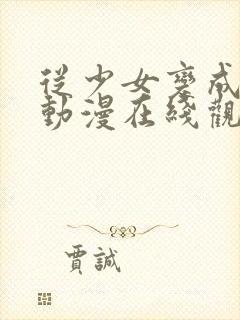 從少女變成
動漫在綫觀
賈誠